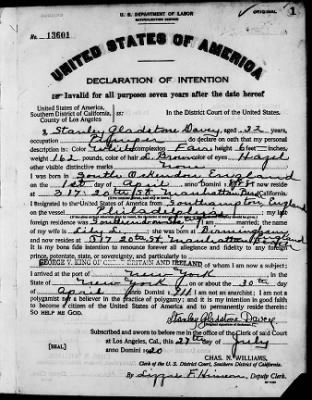 U. S. DEPARTMENT OF LABOR
NATURALIZATION SERVICE
ORIGINAL 1
No. 13601
UNITED STATES OF AMERICA
DECLARATION OF INTENTION
Invalid for all purposes seven years after the date hereof
United States of America,
Southern District of California, ss:
County of Los Angeles
In the District Court of the United States.
I, Stanley Gladstone Davey, aged 32 years,
occupation do declare on oath that my personal
description is: Color White, complexion Fair, height 6 feet inches,
weight 162 pounds, color of hair D. Brown, color of eyes Hazel
other visible distinctive marks none
I was born in South Ockendon England
on the 1st day of April, anno Domini 1888; I now reside
at 317-20th St. Manhattan Bch, California.
I emigrated to the United States of America from Southampton, England
on the vessel Philadelphia; my last
foreign residence was; I am married; the name
of my wife is Lily L.; she was born at Birmingham, England
and now resides at 317 20th St. Manhattan
It is my bona fide intention to renounce forever all allegiance and fidelity to any foreign
prince, potentate, state, or sovereignty, and particularly to
GEORGE V. KING OF BRITAIN AND IRELAND, of whom I am now a subject;
I arrived at the port of New York, in the
State of New York, on or about the 30th day
of April, anno Domini; I am not an anarchist; I am not a
polygamist nor a believer in the practice of polygamy; and it is my intention in good faith
to become a citizen of the United States of America and to permanently reside therein:
SO HELP ME GOD.
Stanley Gladstone Davey
Subscribed and sworn to before me in the office of the Clerk of said Court
at Los Angeles, Cal., this 27th day of July
[SEAL] anno Domini 1920
CHAS. N. WILLIAMS,
Clerk of the U. S. District Court, Southern District of California.
By, Deputy Clerk.